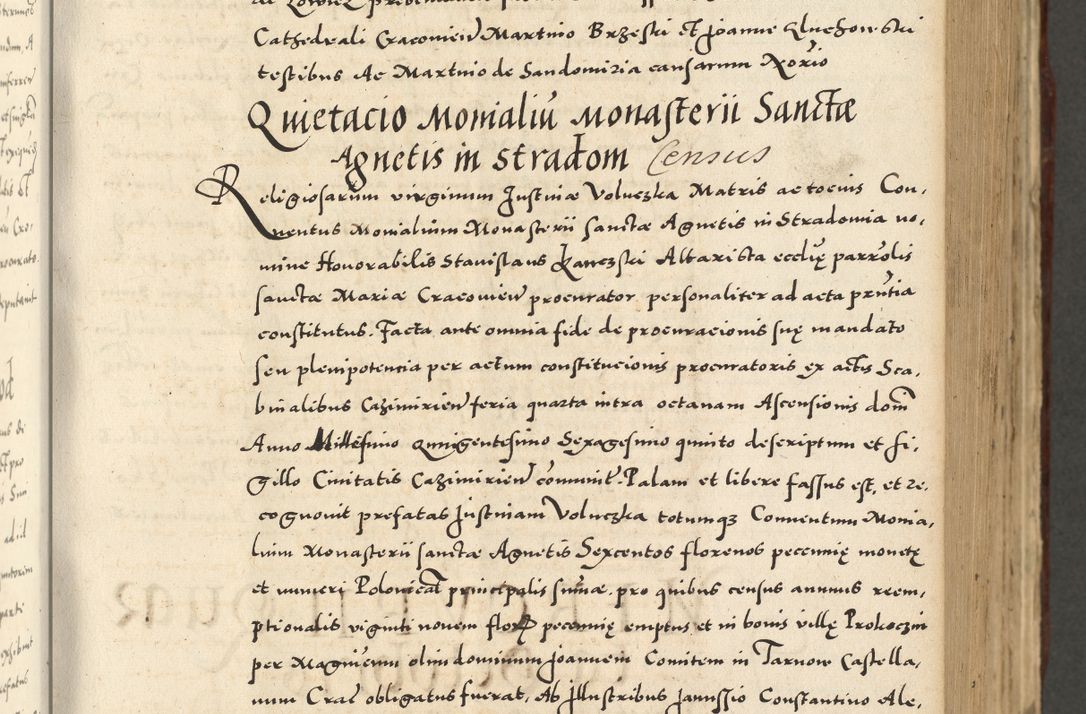 Cathedrali Cracovien̄ Martino Brzeski et Joanne Kluchowski
testibus Ac Martino de Sandomiria causarum No̅rio
Quietacio Monialiū Monasterii Sanctæ
Agnetis in stradom Census
Religiosarum virginum Justinæ Voluczka Matris ac tocius Con,
ventus Monialium Monasterii sanctæ Agnetis in Stradomia no,
mine Honorabilis Stanislaus Altarista eccliȩ parro̅lis
sanctæ Mariæ Cracovien̄ procurator personaliter ad acta prn̄tia
constitutus. Facta ante omnia fide de procuracionis suȩ mandato
seu plenipotencia per actum constitucionis procuratoris ex actis Sca,
binalibus Cazimirien̄ feria quarta intra octavam Ascensionis domi̅
Anno Millesimo quingentesimo Sexagesimo quinto descriptum et si,
gillo Civitatis Cazimirien̄ com̄unit. Palam et libere fassus est, et re,
cognovit prefatas Justinam Voluczka totumqꝫ Conventum Monia,
lium Monasterii sanctæ Agnetis Sexcentos florenos pecuniȩ monetȩ
et numeri Polonical̄ principalis sum̄æ. pro quibus census annuus reem,
ptionalis viginti novem floꝝ pecuniȩ emptus et in bonis villȩ Prokoczin
per Magnificum olim dominum Joannem Comitem in Tarnow Castella,
num Crac̄ obligatus fuerat, Ab Illustribus Janussio Constantino Ale,